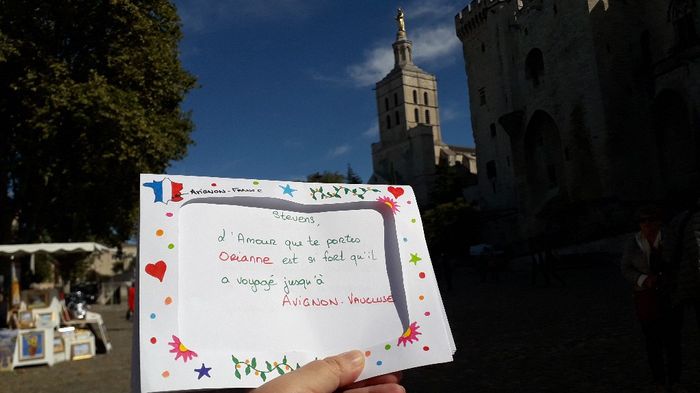 AVIGNON-FRANCE
Stevens,
d'Amour que te portes
Orianne est si fort qu'il
a voyagé jusqu'à
AVIGNON-VAUCLUSE